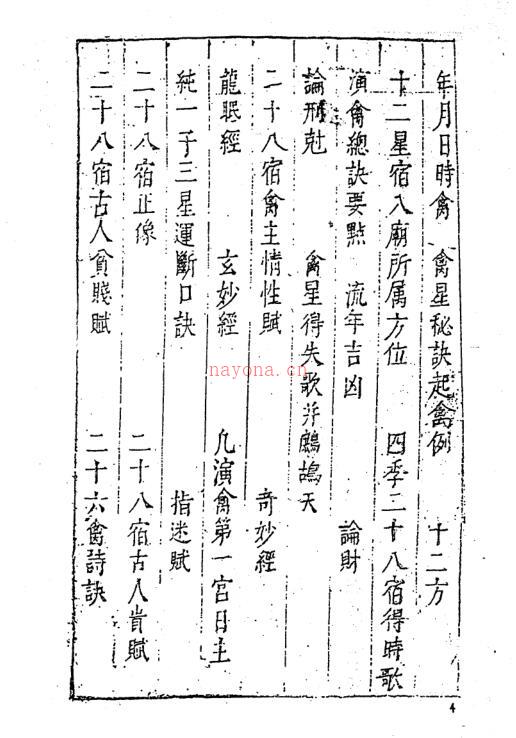 年月日時禽 禽星秘訣起禽例 十二方
十二星宿入廟所属方位 四季二十八宿得時歌
演禽總訣要點 流年吉凶 論財
論刑尅 禽星得失歌并鷓鴣天
二十八宿禽主情性賦 奇妙經
龍眠經 玄妙經 凡演禽第一宮日主
純一子三星運斷口訣 指迷賦
二十八宿正像 二十八宿古人貴賦
二十八宿古人貧賤賦 二十六禽詩訣
nayona.cn
4